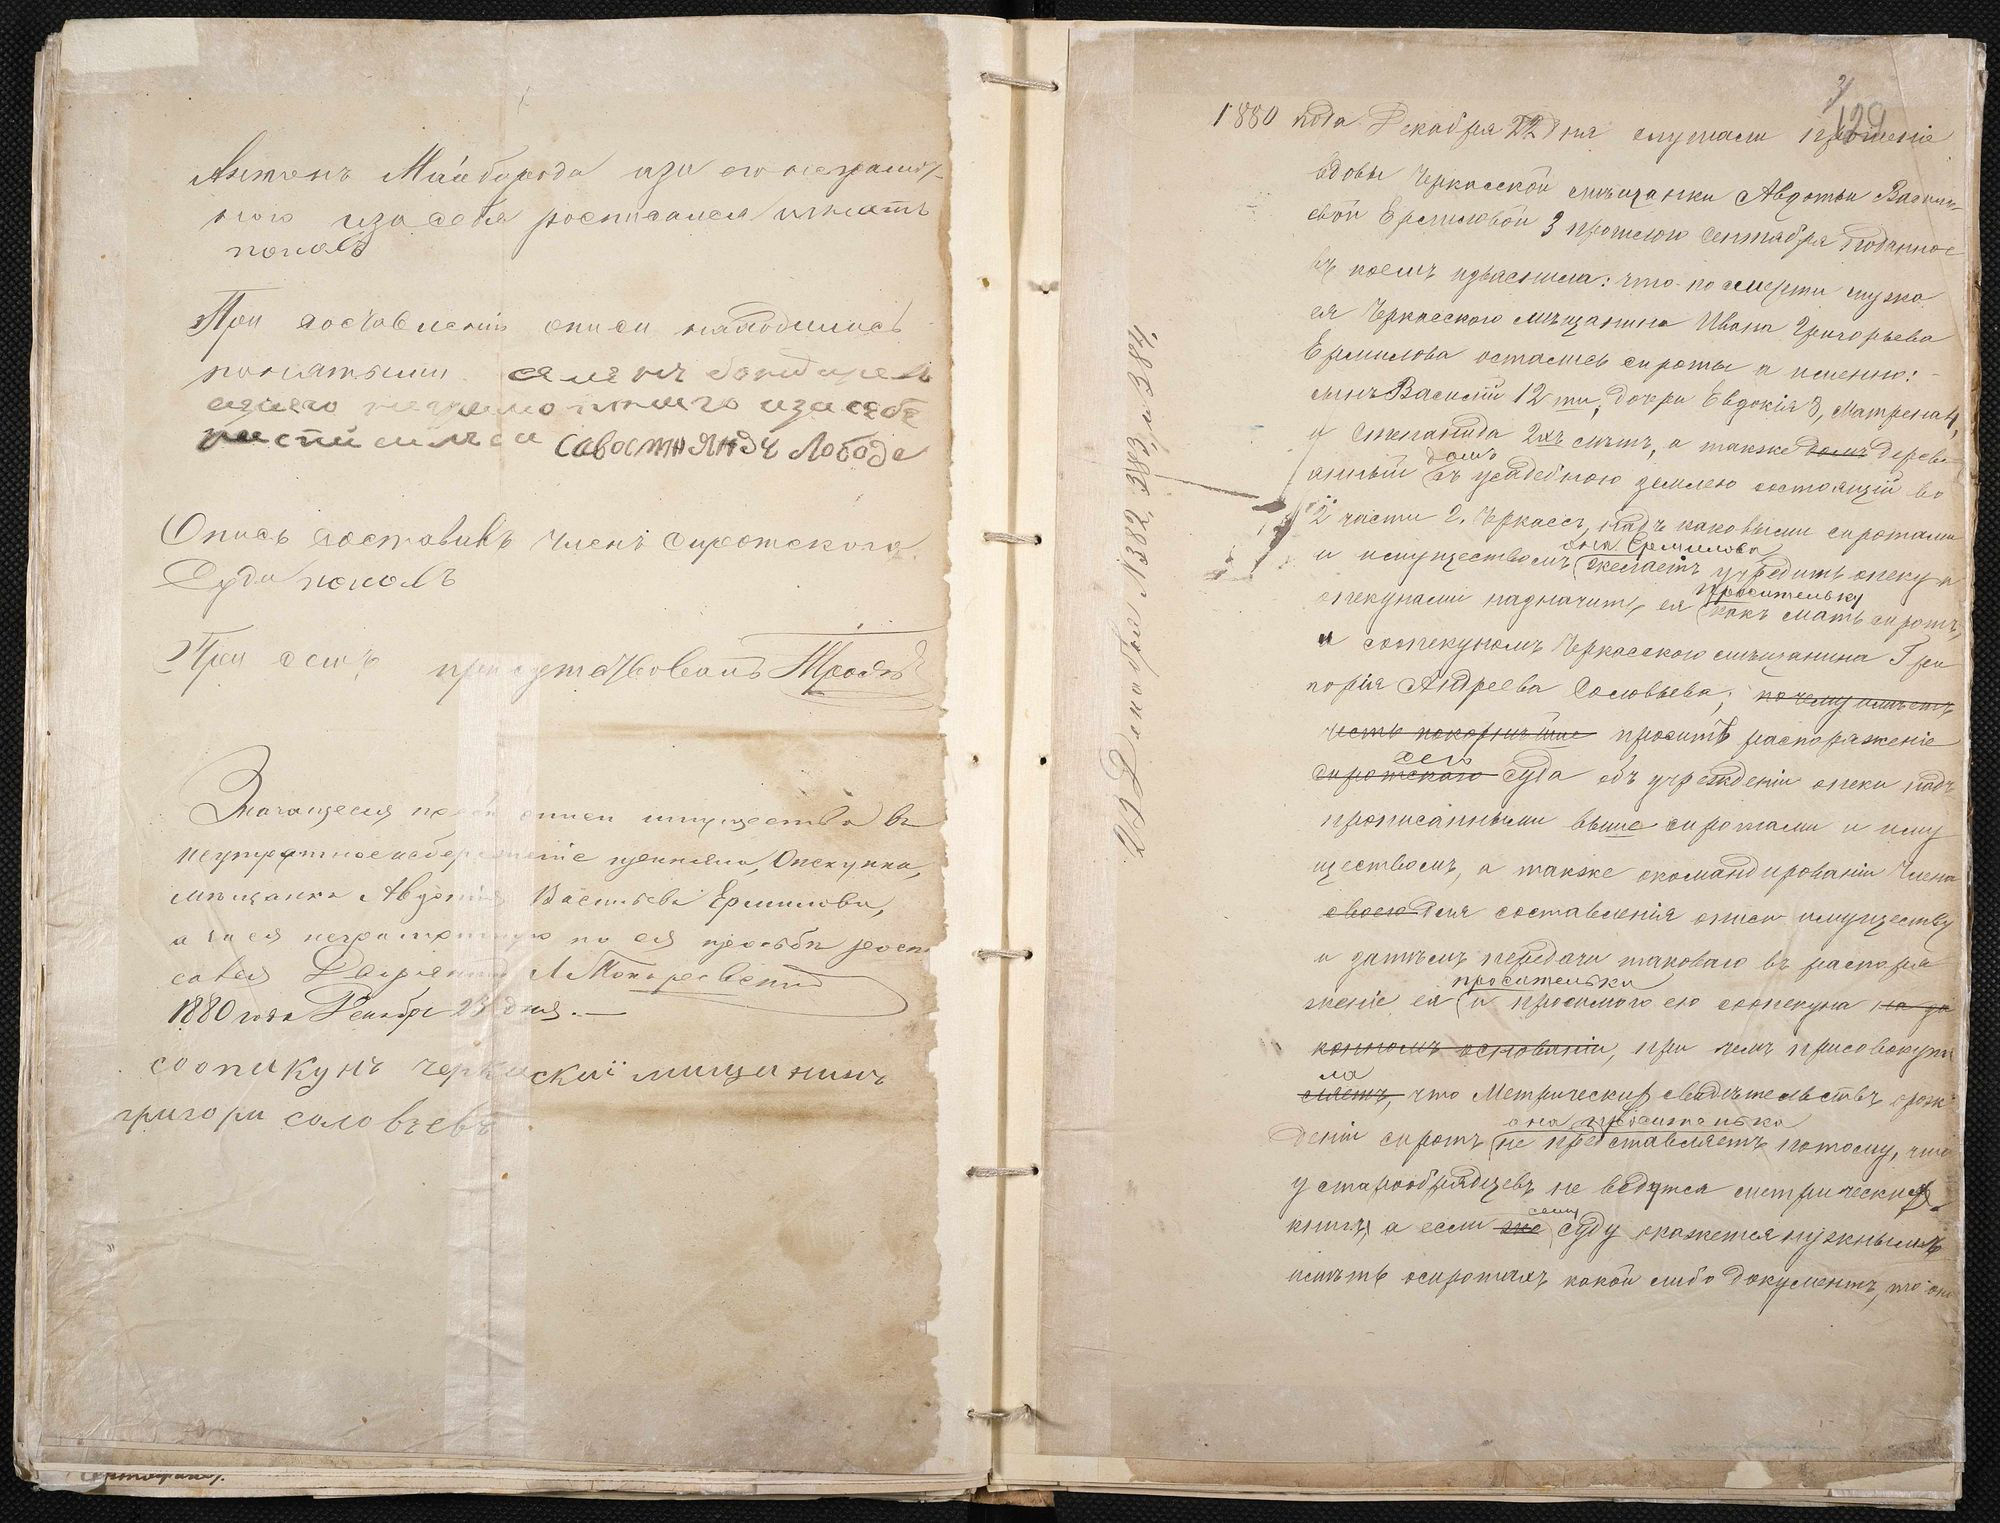 Антонъ Майборода иза его неграмот-
ного иза себя росписался игнатъ
поповъ
При составленіи описи находились
понятыми
неграмотного иза себе
росписался Савостиянъ Лобода
Опись составилъ Членъ Сиротскаго
Суда
При семъ присутствовалъ
Значащееся по сей описи имущество въ
сбереженіе приняла, Опекунка,
мѣщанка Авдотія Васильева Ермилова,
а за ея неграмотную по ея просьбѣ роспи
сался
1880 года Декабр 23 дня.—
соопикунъ черкаскиї мищининъ
григори саловъевъ
3
129
1880 года Декабря 22 дня слушали прошеніе
вдовы Черкасской мѣщанки Авдотьи Василь-
евой Ермиловой 3 прошлого Сентября поданное
въ коемъ изъяснила: что по смерти мужа
ея Черкасского мѣщанина Ивана Григорьева
Ермилова остались сироты а именно:
сынъ Василій 12 ти, дочери Евдокія 8, Матрена 4,
и Степанида 2хъ лѣтъ, а также домъ дереве
домъ
анный съ усадебною землею состоящій во
2 части г. Черкассъ, надъ каковыми сиротами
она Ермилова
и имуществомъ желаетъ учредить опеку и
просительку
опекунами назначить ея какъ мать сиротъ,
и соопекуномъ Черкасского мѣщанина Гри
горія Андреева Соловьева, почему имѣетъ
честь покорнѣйше проситъ распоряженіе
сего
сиротскаго Суда объ учрежденіи опеки надъ
прописанными выше сиротами и иму
ществомъ, а также окомандированіи Члена
своего для составленія описи имуществу
и затѣмъ передачи таковаго въ распоря
просительки
женіе ея и просимого ею соопекуна на за
конномъ основаніи, при чемъ присовокупи
ла
ляетъ, что Метрическихъ свидѣтельствъ орож
она просителька
деніи сиротъ не представляетъ потому, что
у старообрядцевъ не ведутся метрическія
сему
книги, а если же Суду окажется нужнымъ
имѣть осиротахъ какой либо документъ, то она
22 Декабря № 382, 383, и 384,